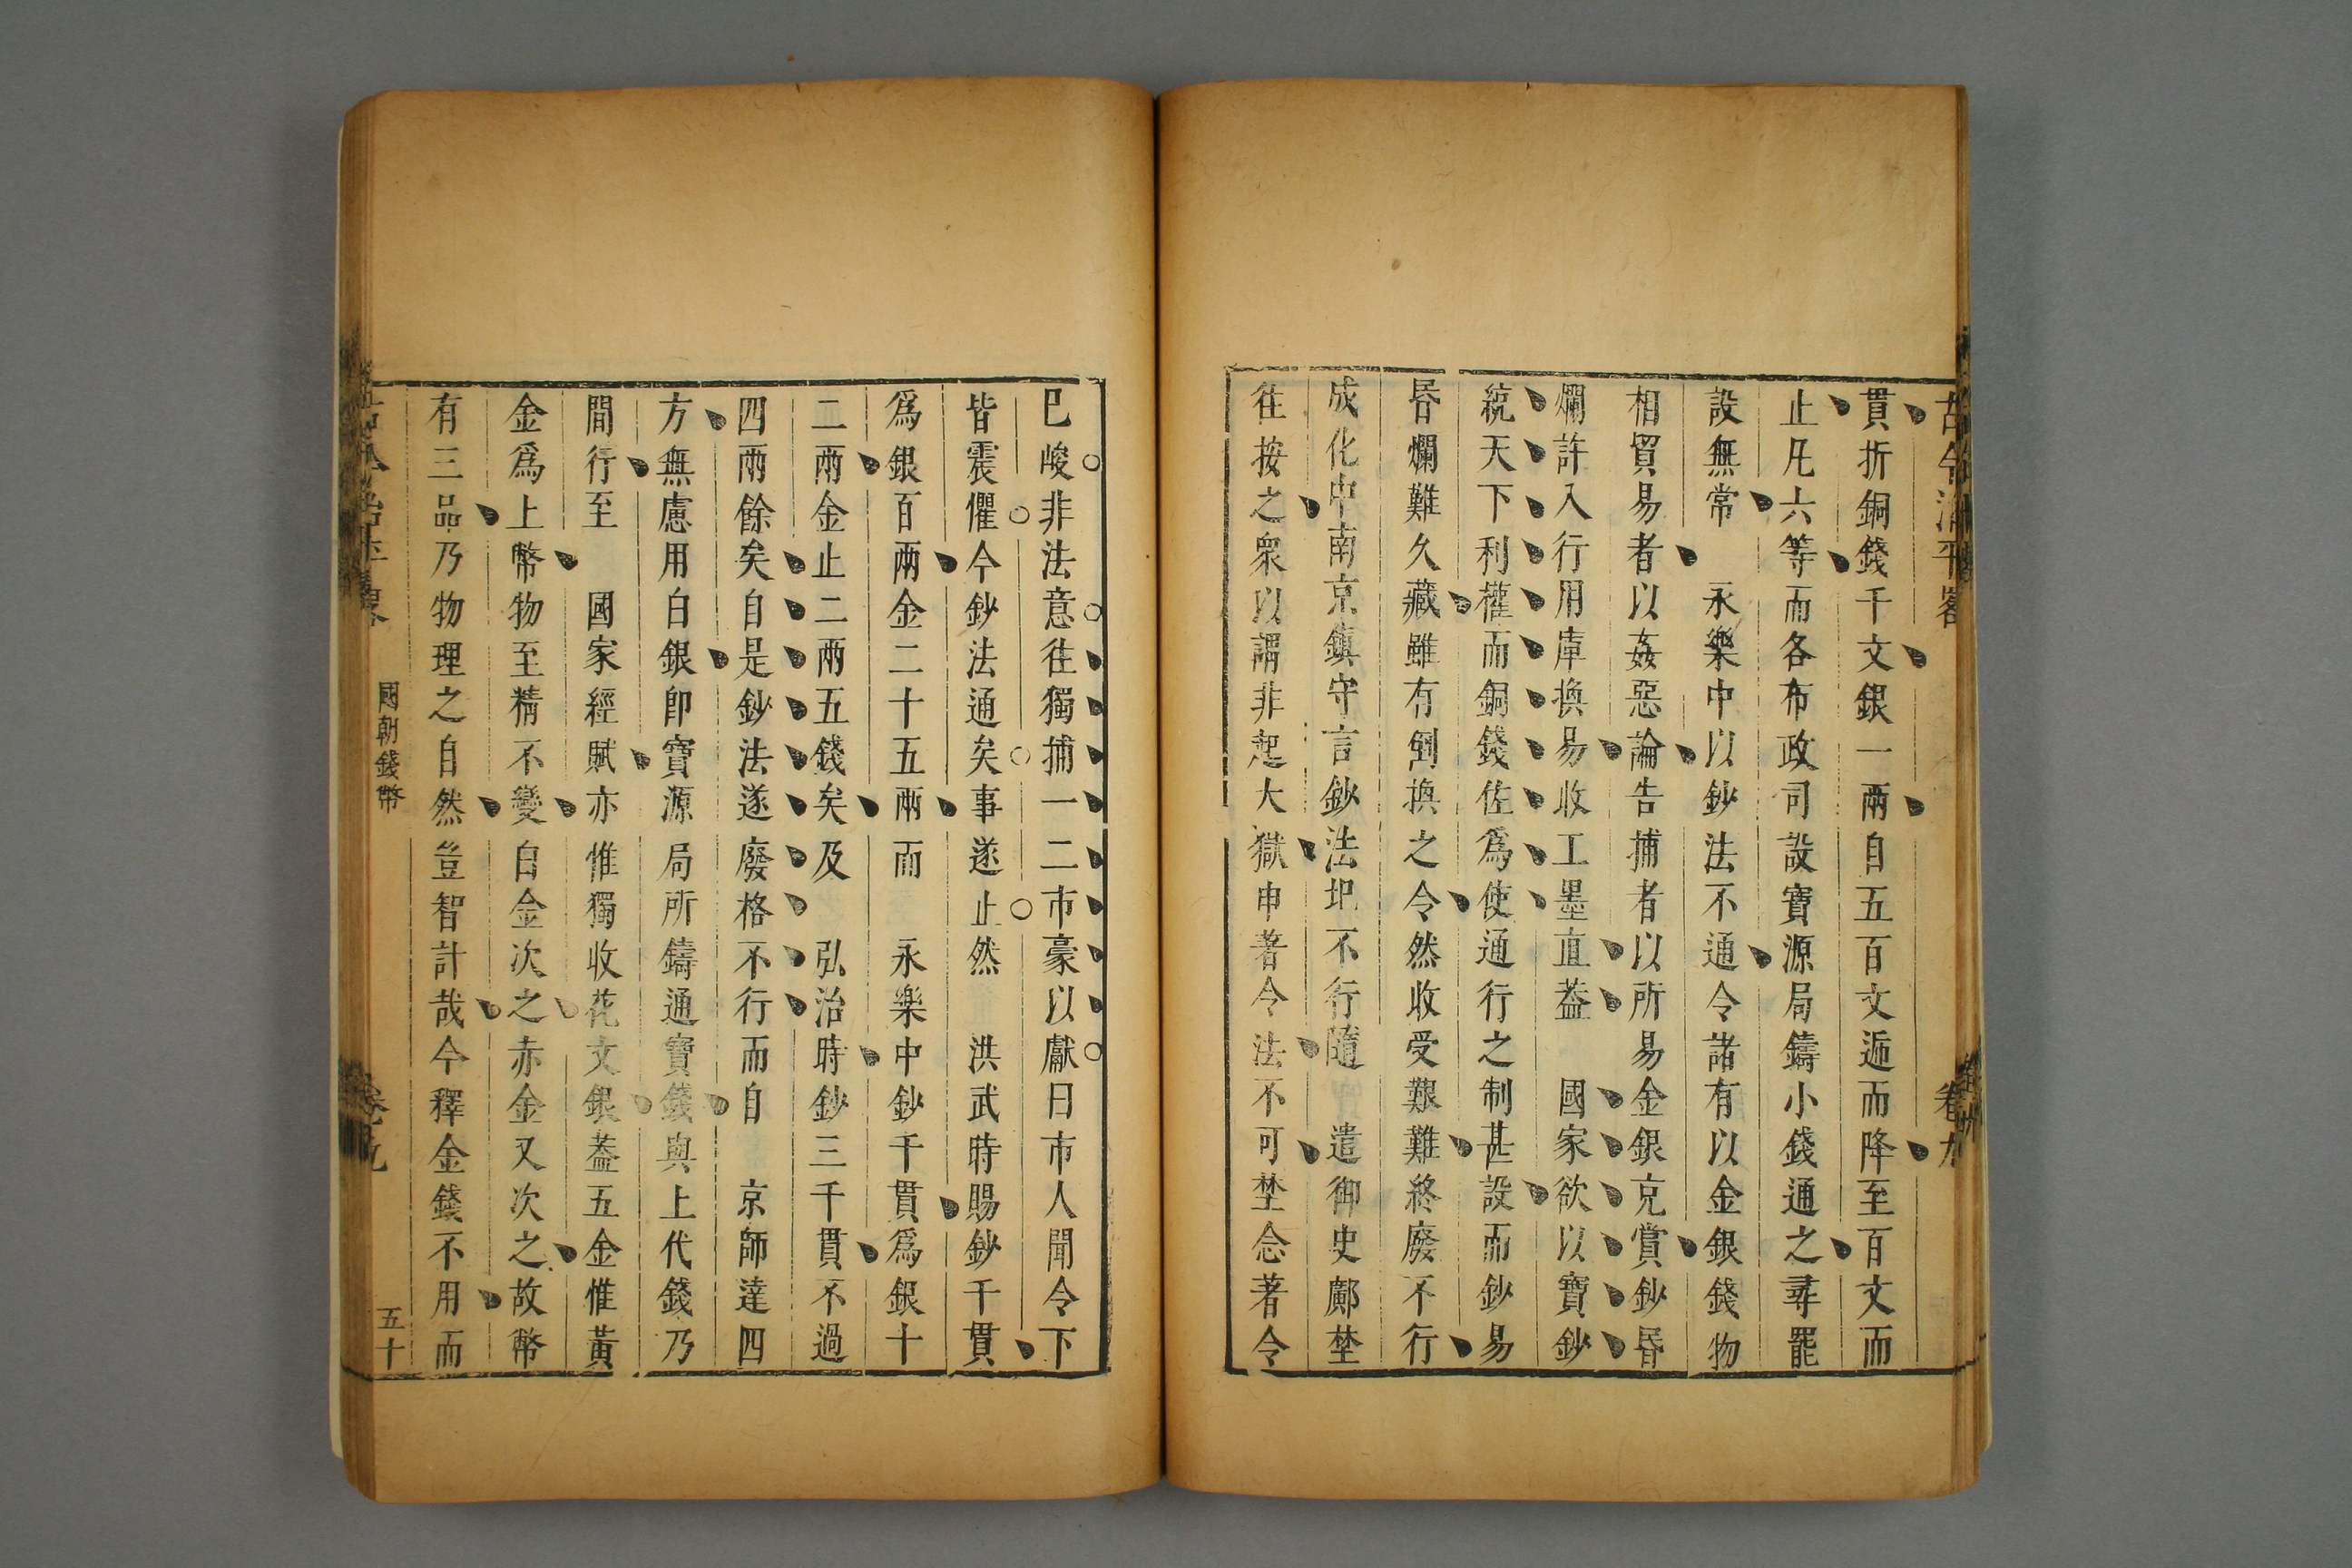 古今治平畧
卷九
貫折銅錢千文銀一兩自五百文遞而降至百文而
止凡六等而各布政司設寶源局鑄小錢通之尋罷
設無常　永樂中以鈔法不通令諸有以金銀錢物
相貿易者以姦惡論告捕者以所易金銀充賞鈔昬
爛許入行用庫換易收工墨直葢　國家欲以寶鈔
統天下利權而銅錢佐爲使通行之制甚設而鈔易
昬爛難久藏雖有倒換之令然收受艱難終廢不行
成化中南京鎮守言鈔法圯不行隨　遣御史鄺埜
徃按之衆以謂非起大獄申著令法不可埜念著令
已峻非法意徃獨捕一二市豪以獻日市人聞令下
皆震懼今鈔法通矣事遂止然　洪武時賜鈔千貫
爲銀百兩金二十五兩而　永樂中鈔千貫爲銀十
二兩金止二兩五錢矣及　弘治時鈔三千貫不過
四兩餘矣自是鈔法遂廢格不行而自　京師達四
方無慮用白銀卽寶源局所鑄通寶錢與上代錢乃
間行至　國家經賦亦惟獨收花文銀葢五金惟黃
金爲上幣物至精不變白金次之赤金又次之故幣
有三品乃物理之自然豈智計哉今釋金錢不用而
國朝錢幣
卷九
五十